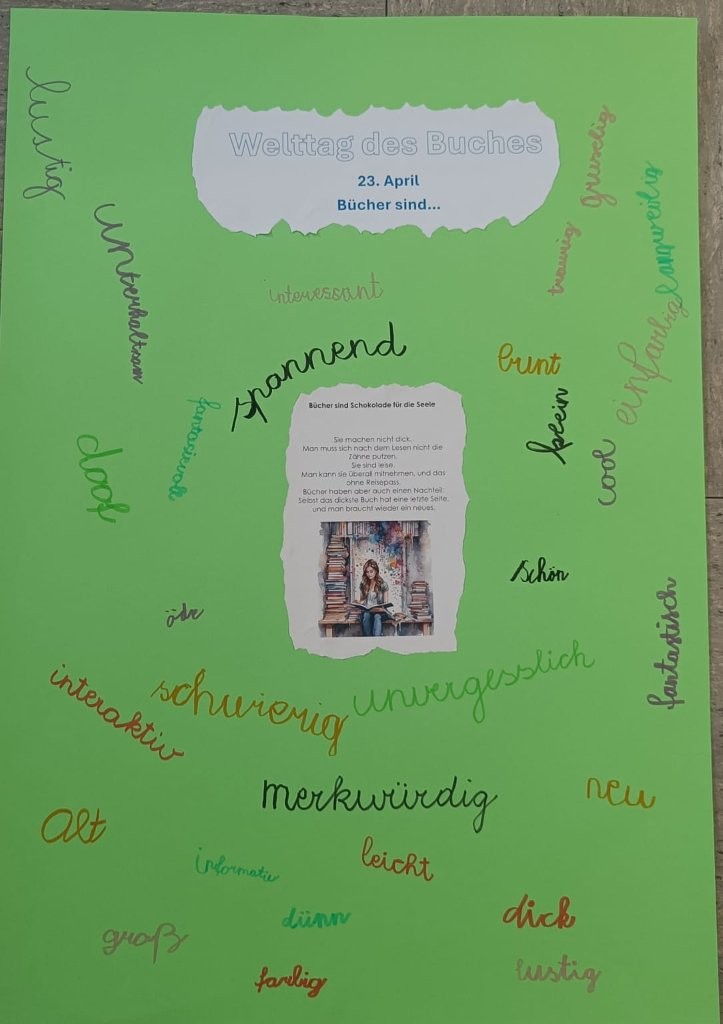 Welttag des Buches
23. April
Bücher sind...
lustig
gruselig
langweilig
unterhaltsam
traurig
interessant
einfarbig
spannend
bunt
fantasievoll
cool
doof
Bücher sind Schokolade für die Seele
Sie machen nicht dick.
Man muss sich nach dem Lesen nicht die
Zähne putzen.
Sie sind leise.
Man kann sie überall mitnehmen, und das
ohne Reisepass.
Bücher haben aber auch einen Nachteil:
Selbst das dickste Buch hat eine letzte Seite,
und man braucht wieder ein neues.
schön
öde
fantastisch
interaktiv
schwierig
unvergesslich
merkwürdig
neu
alt
leicht
informativ
dünn
dick
groß
farbig
lustig